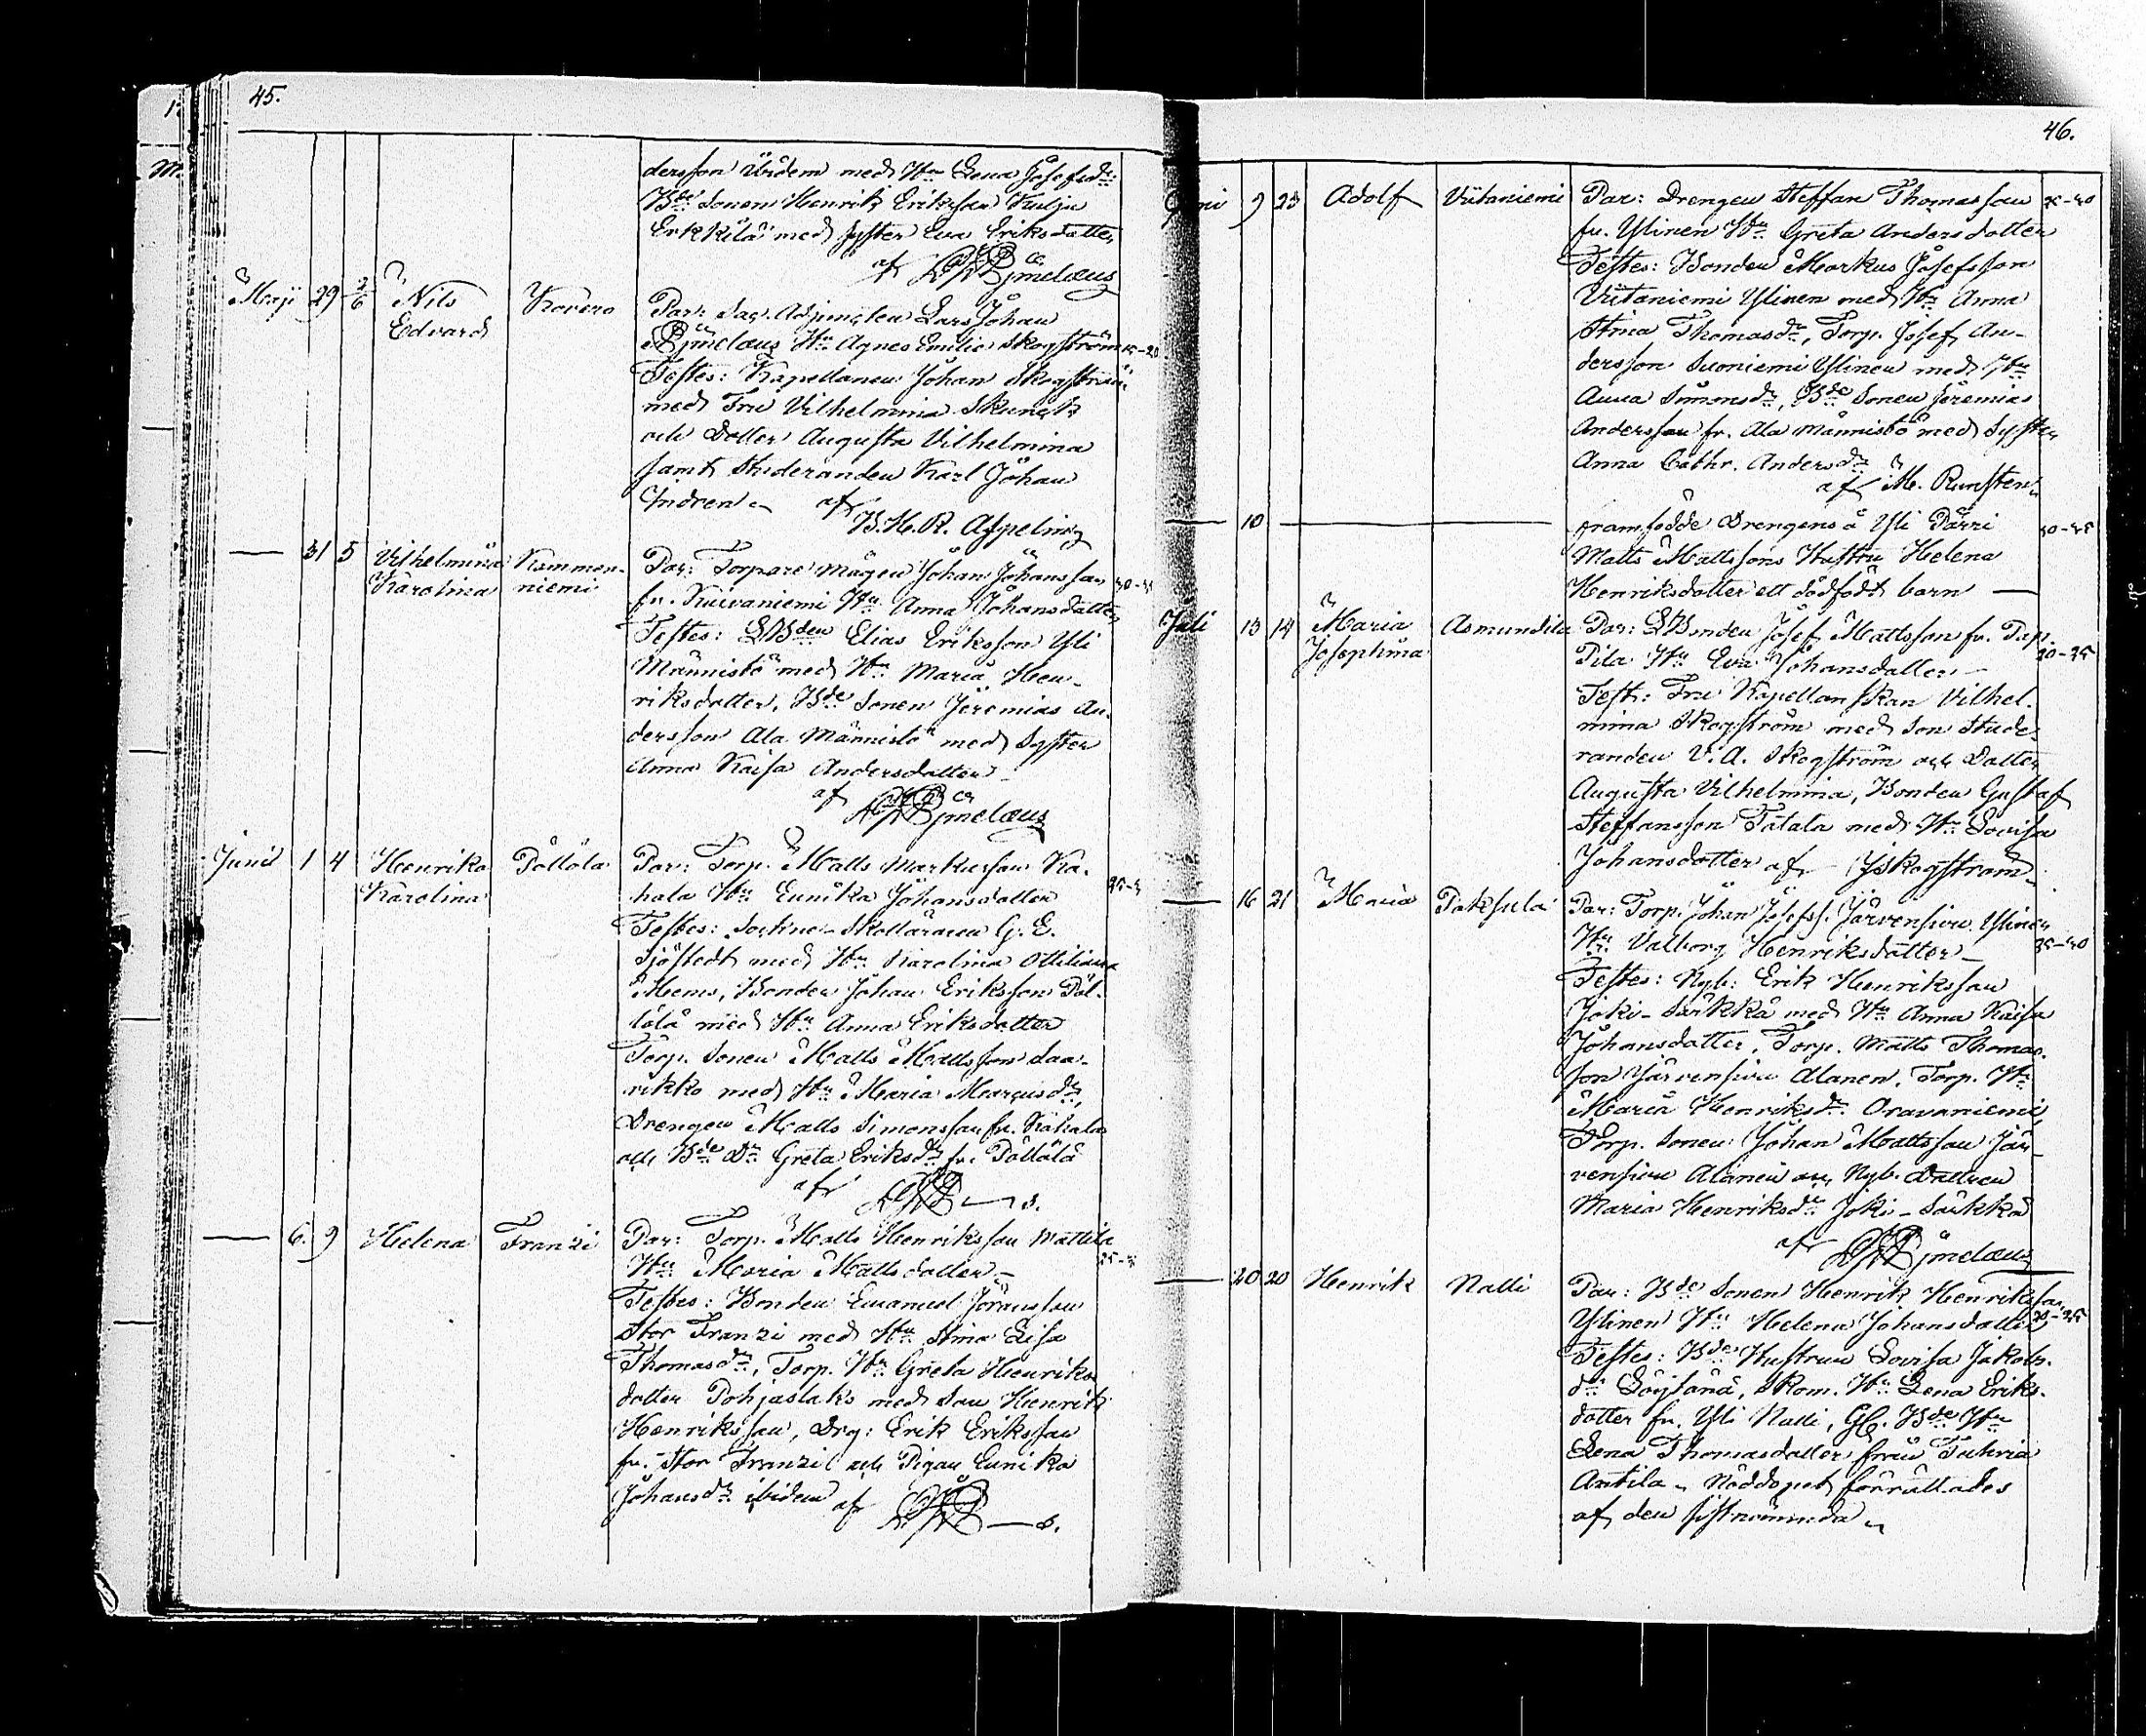 45.
dersson ibidem med Hu Lena Josefsdr
Bde Sonen Henrik Eriksson Kulju
Erkkilä med syster Eva Eriksdotter
af
Maji 29 2/6 Nils Edvard Kovero
Par: Sac. Adjuncten Lars Johan
Hu Agnes Emilie Skogström
Testes: Kapellanen Johan Skogström
med Fru Vilhelmina Skunck
och Dotter Augusta Vilhelmina
samt Studeranden Karl Johan
Indren af
B. H. R. Aspelin
— 31 5 Vilhelmina Karolina Kammonniemi
Par: Torpare mågen Johan Johansson 30-35
fr. Kuivaniemi Hu Anna Johansdotter
Testes: Elias Eriksson Yli
Männistö med Hu Maria Hen-
riksdotter, Bde Sonen Jeremias An-
dersson Ala Männistö med Syster
Anna Kaisa Andersdotter
af
Junii 1 4 Henrika Karolina Pöllölä
Par: Torp. Matts Markusson Ka-
hala Hu Eunika Johansdotter
Testes: Sockne-Skolläraren G. E.
Sjöstedt med Hu Karolina Ottiliana
Mems, Bonden Johan Eriksson Pöl-
lölä med Hu Anna Eriksdotter
Torp. Sonen Matts Mattsson Saa-
rikko med Hu Maria Marcusdr,
Drengen Matts Simonsson fr. Kahala
och Bde Dr Greta Eriksdr fr. Pöllölä
af
— 6. 9 Helena Franzi
Par: Torp. Matts Henriksson Mattila
Hu Maria Mattsdotter
Testes: Bonden Emanuel Göransson
Stor Franzi med Hu Stina Lisa
Thomasdr, Torp. Hu Greta Henriks
dotter Pohjaslaks med Son Henrik
Henriksson, Drg: Erik Eriksson
fr. Stor Franzi och Pigan Eunika
Johansdr ibidem af
46.
Juni 9 23 Adolf Viitaniemi
Par: Drengen Steffan Thomasson
fr. Ylinen Hu Greta Andersdotter
Testes: Bonden Markus Josefsson
Viitaniemi Ylinen med Hu Anna
Stina Thomasdr, Torp. Josef An-
dersson Suoniemi Ylinen med Hu
Anna Simonsdr, Bde Sonen Jeremias
Andersson fr. Ala Männistö med Syster
Anna Cathr. Andersdr
af M. Runsten
— 10 —
Framfödde Drengens å Yli Pärri
Matts Mattssons Hustru Helena
Henriksdotter ett dödfödt barn —
Juli 13 14 Maria Josephina Asmundila
Par: Bonden Josef Mattsson fr. Pap-
Pila Hu Eva Johansdotter 20-25
Test: Fru Kapellanskan Vilhel-
mina Skogström med Son Stude-
randen V. A. Skogström och Dotter
Augusta Vilhelmina, Bonden Gustaf
Steffansson Tatala med Hu Lovisa
Johansdotter af J Skogström
— 16 21 Maria Paksula
Par: Torp. Johan Josefss. Järvensivu Ylinen
Hu Valborg Henriksdotter 35-40
Testes: Nyb: Erik Henriksson
Joki-Särkkä med Hu Anna Kaisa
Johansdotter, Torp. Matts Thomas-
son Järvensivu Alanen, Torp. Hu
Maria Henriksdr Oravaniemi,
Torp. Sonen Johan Mattsson Jär-
vensivu Alanen och Nyb. Dottren
Maria Henriksdr Joki-Särkkä
af
— 20 20 Henrik Nalli
Par: Bde Sonen Henrik Henriksson
Ylinen Hu Helena Johansdotter
Testes: Bde Hustrun Lovisa Jakobs-
dr Löytänä, Skom. Hu Lena Eriks-
dotter fr. Yli Nalli, Gl. Bde Hu
Lena Thomasdotter från
Antila. Nöddopet förrättades
af den sistnämnda